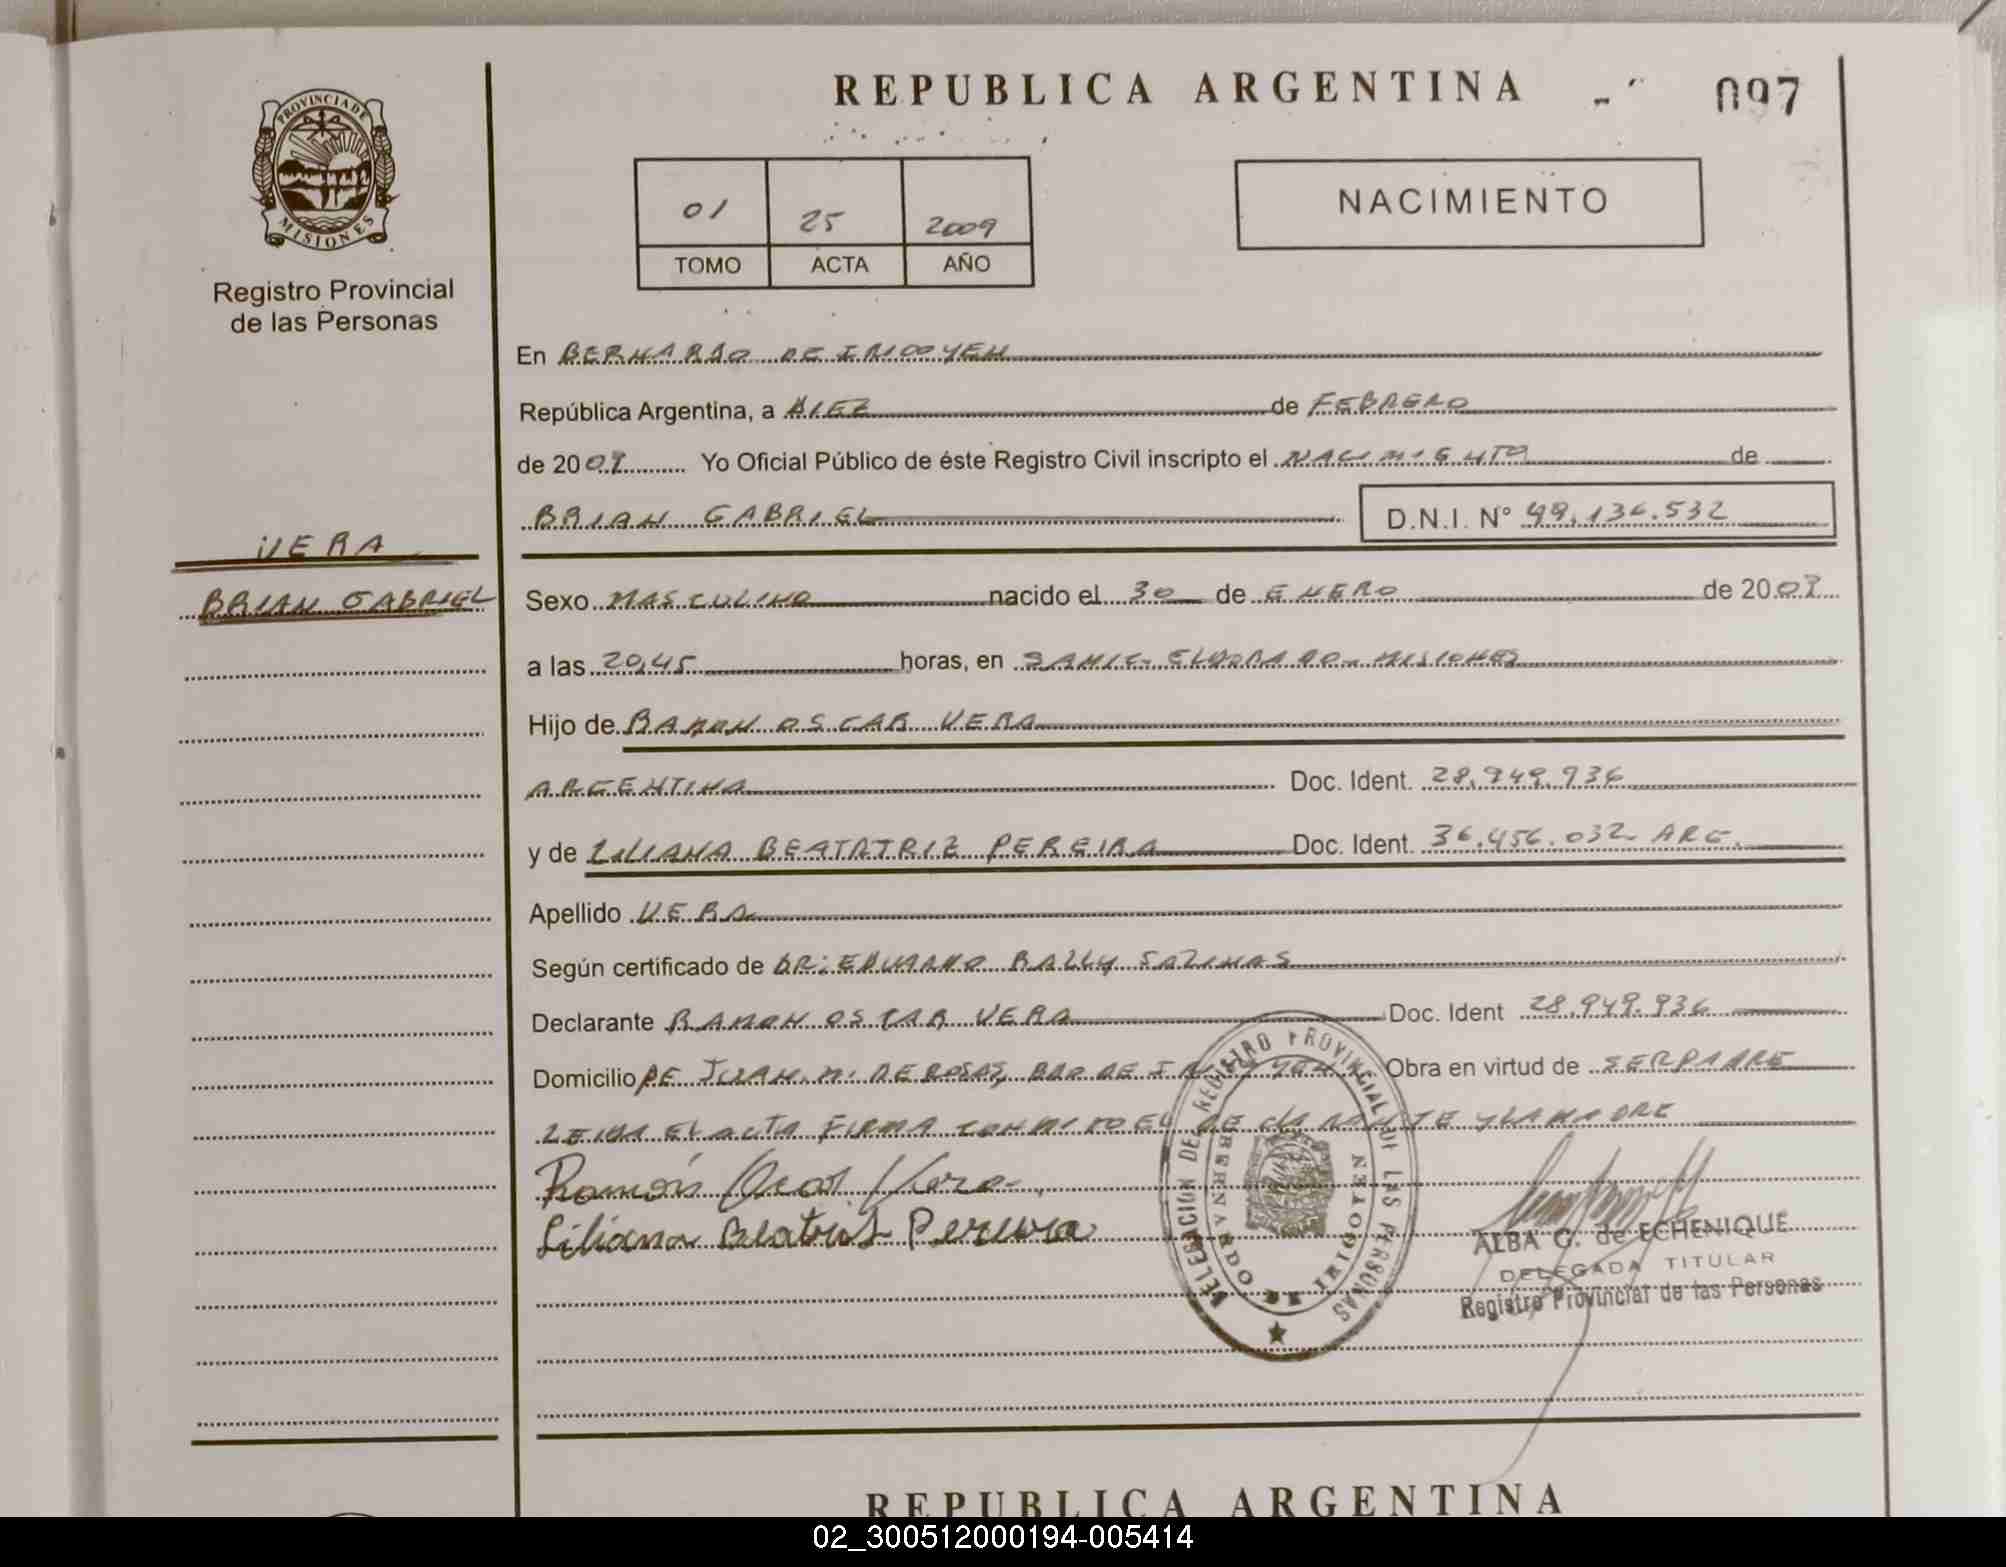 REPUBLICA ARGENTINA
097
PROVINCIA DE
MISIONES
Registro Provincial
de las Personas
01 25 2009
TOMO ACTA AÑO
NACIMIENTO
En BERNARDO DE IRIGOYEN
República Argentina, a DIEZ de FEBRERO
de 2009 Yo Oficial Público de éste Registro Civil inscripto el NACIMIENTO de
BRIAN GABRIEL D.N.I. N° 49.136.532
VERA
BRIAN GABRIEL
Sexo MASCULINO nacido el 30 de ENERO de 2009
a las 20,45 horas, en SAMIC- ELDORADO- MISIONES
Hijo de RAMON OSCAR VERA
ARGENTINA Doc. Ident. 28.949.936
y de LILIANA BEATATRIZ PEREIRA Doc. Ident. 36.456.032 ARG.
Apellido VERA
Según certificado de DR: EDUARDO RALLY SALINAS
Declarante RAMON OSCAR VERA Doc. Ident 28.949.936
Domicilio JUAN. M. DE ROSAS, BDO DE IRIGOYEN Obra en virtud de SER PADRE
LEIDA EL ACTA FIRMA CONMIGO EL DECLARANTE Y LA MADRE
Ramón Oscar Vera
Liliana Beatris Pereira
DELEGACION DEL REGISTRO PROVINCIAL DE LAS PERSONAS
BERNARDO DE IRIGOYEN
ALBA G. de ECHENIQUE
DELEGADA TITULAR
Registro Provincial de las Personas
REPUBLICA ARGENTINA
02_300512000194-005414